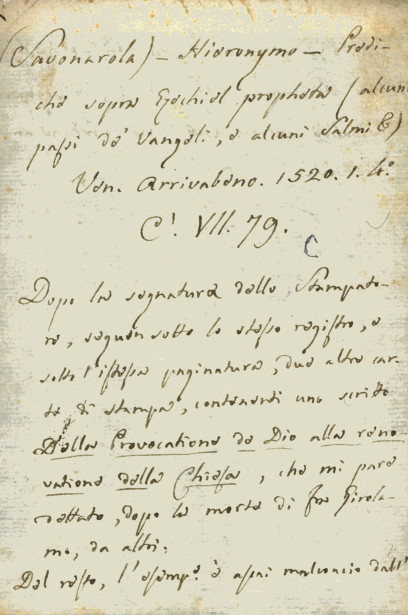 (Savonarola) - Hieronymo - Predi-
che sopra Ezechiel propheta (alcuni
passi de' Vangeli, e alcuni Salmi &)
Ven. Arrivabeno. 1520. 1. 4.º
C¹. VII. 79.
C
Dopo la segnatura dello Stampato-
re, seguon sotto lo stesso registro, e
sotto l'istessa paginatura, due altre car-
te di stampa, contenenti uno scritto
Della Provocatione de Dio alla reno-
vatione della Chiesa, che mi pare
dettato, dopo la morte di fra Girola-
mo, da altri.
Del resto, l'esemp.e è assai malconcio dall'